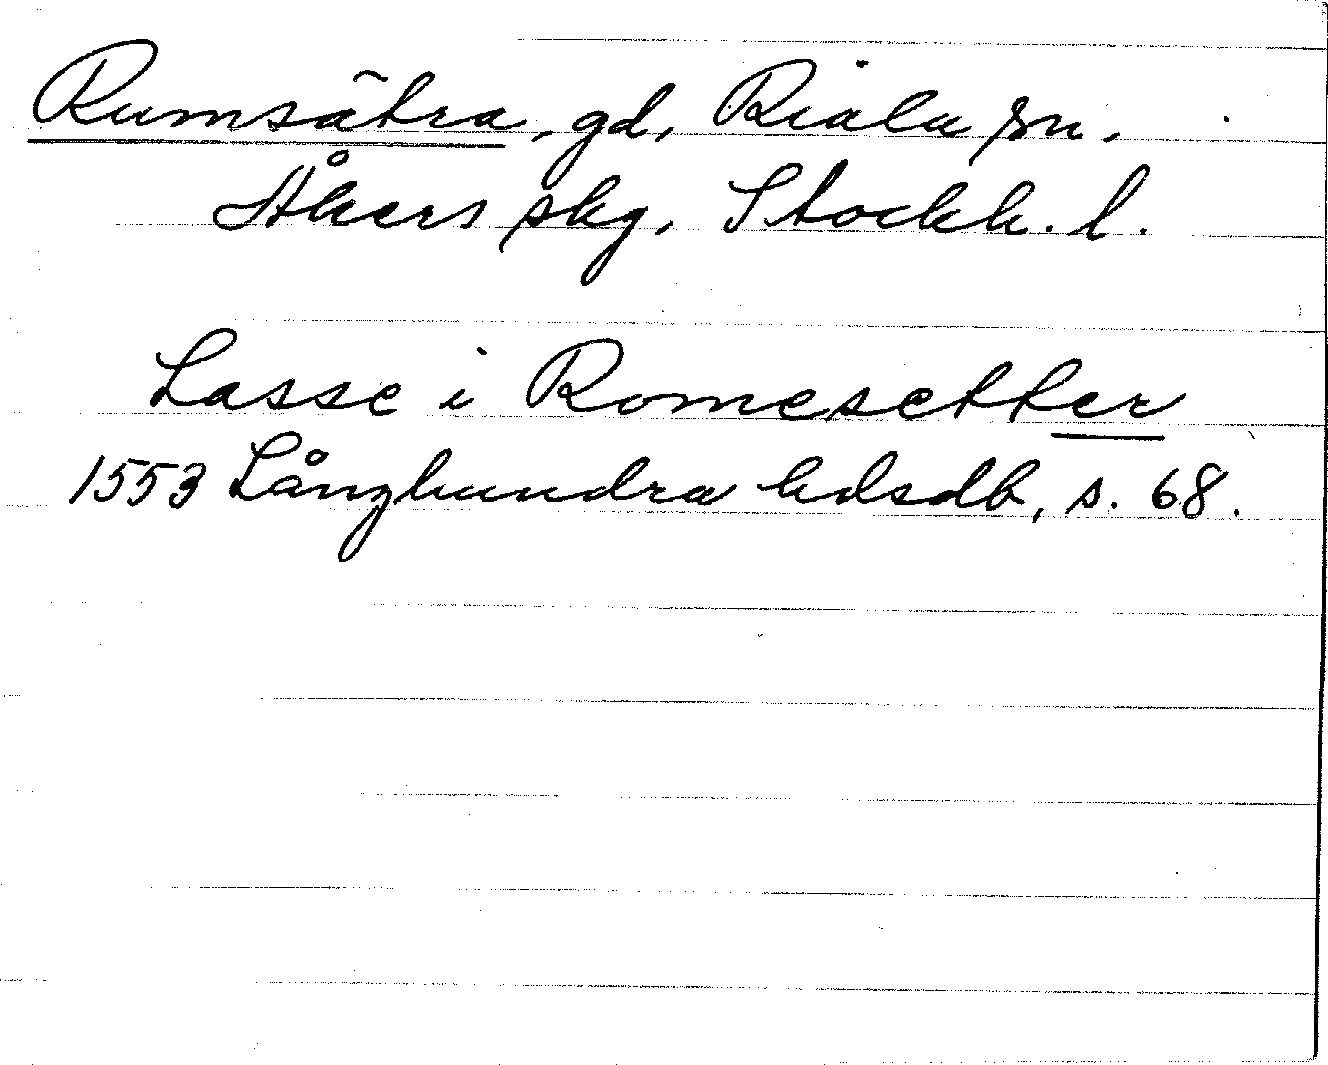 Rumsätra, gd, Riala sn.
Åkers skg, Stockh. l.
Lasse i Romesetter
1553 Långhundra hdsdb, s. 68.